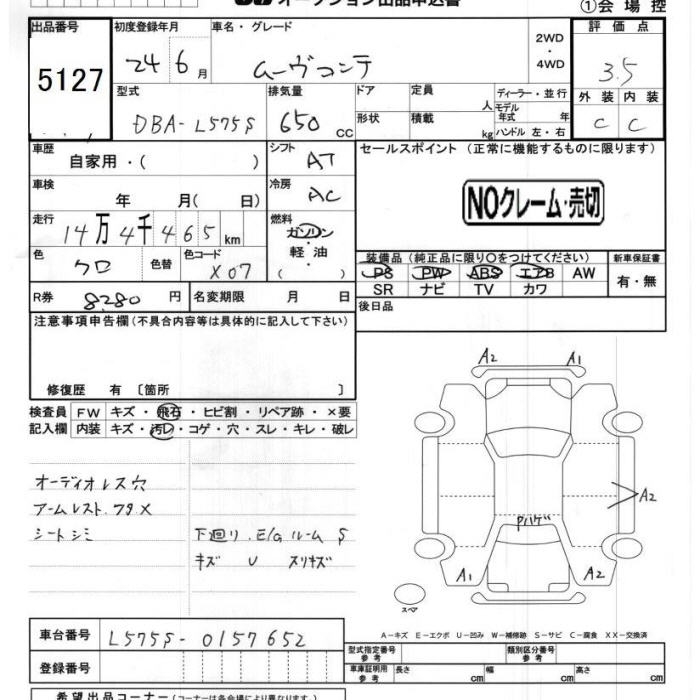 オークション出品申込書
①会場控
出品番号 初度登録年月 車名・グレード 2WD・4WD 評価点
5127 24年 6月 ムーヴコンテ 3.5
型式 排気量 ドア 定員 人 ディーラー・並行 外装 内装
DBA-L575S 650cc 形状 積載 kg モデル年式 年 ハンドル 左・右 C C
車歴 自家用・( ) シフト AT セールスポイント (正常に機能するものに限ります)
車検 年 月( 日) 冷房 AC
NOクレーム・売切
走行 14万4千465km 燃料 ガソリン 軽油 ( )
色 クロ 色替 色コード X07
装備品 (純正品に限り○をつけてください) 新車保証書
PS PW ABS エアB AW 有・無
SR ナビ TV カワ
R券 8280円 名変期限 月 日 後日品
注意事項申告欄(不具合内容等は具体的に記入して下さい)
修復歴 有 〔箇所 〕
検査員 FW キズ・飛石・ヒビ割・リペア跡・×要
記入欄 内装 キズ・汚レ・コゲ・穴・スレ・キレ・破レ
A2 A1
オーディオレス穴
アームレスト.フタX
シートシミ 下廻リ.E/Gルーム S
キズ U スリキズ
A2
Pハゲ
A1 A2
スペア
A-キズ E-エクボ U-凹み W-補修跡 S-サビ C-腐食 XX-交換済
車台番号 L575S-0157652
型式指定番号 参考 類別区分番号 参考
登録番号
車庫証明用 参考 長さ cm 幅 cm 高さ cm
希望出品コーナー(コーナーは各会場により異なります)